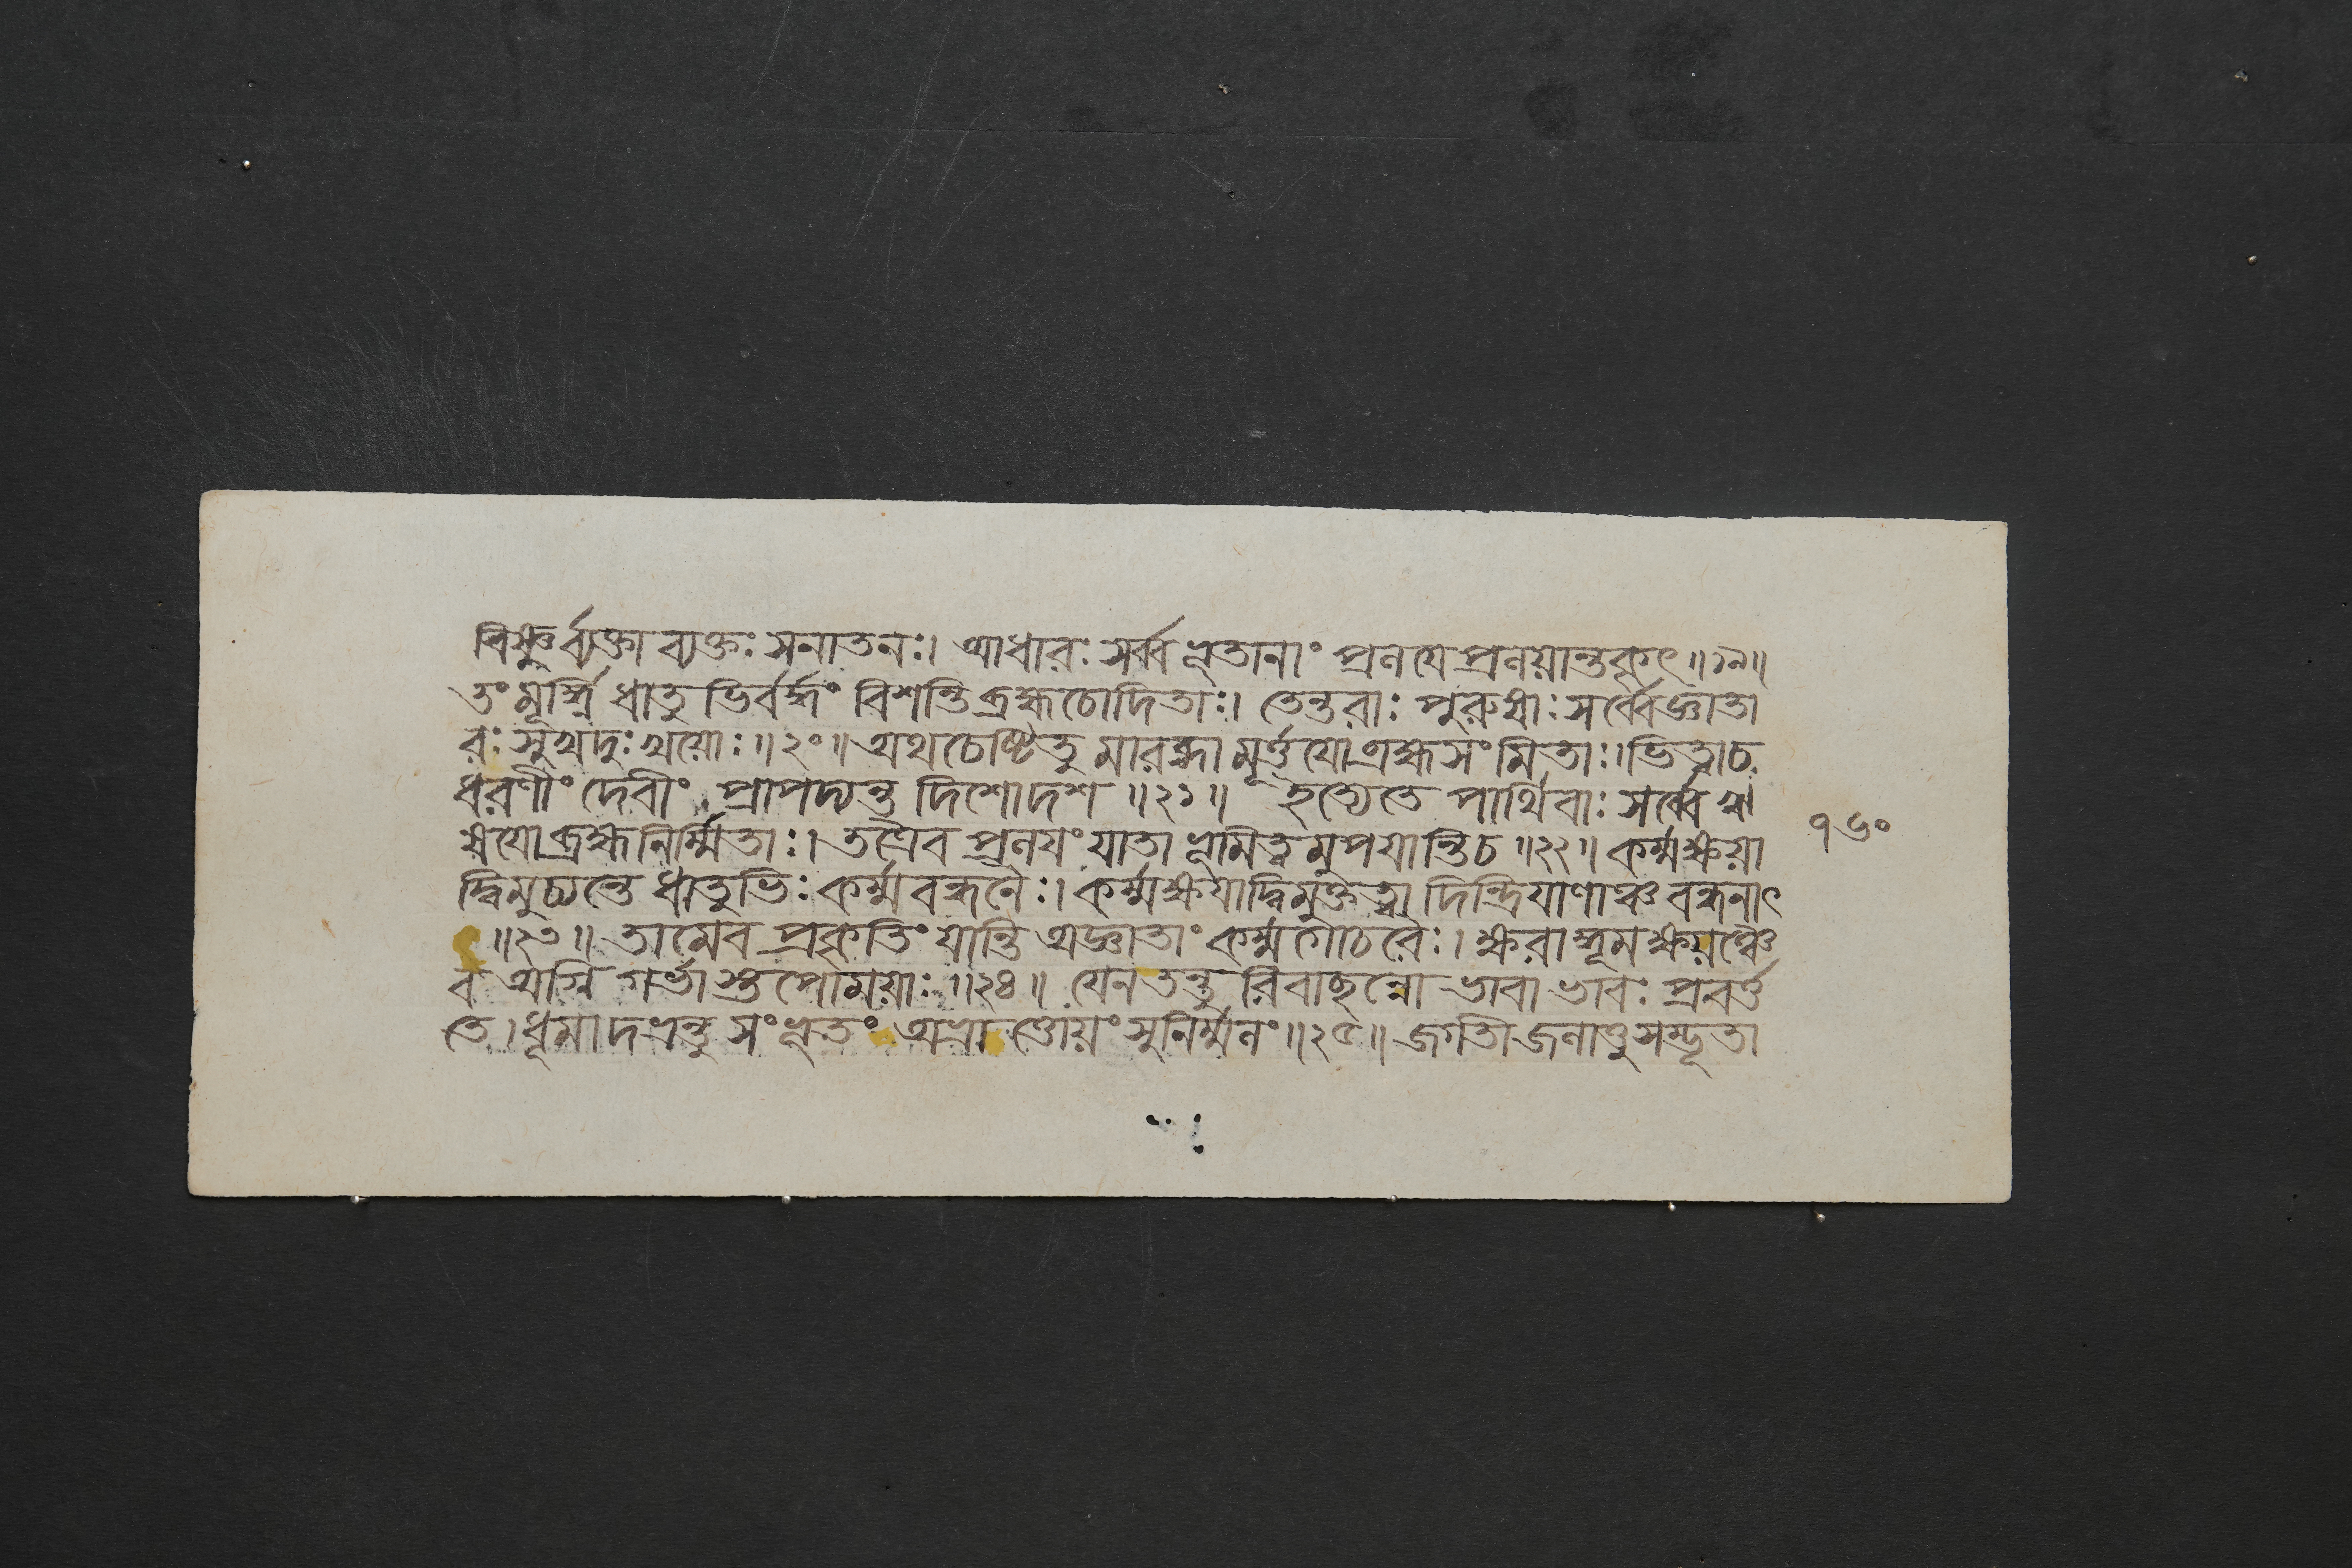 বিষ্ণুর্ব্যক্তাব্যক্তঃ সনাতনঃ। আধারঃ সর্ব্বভূতানাং প্রলয়ে প্রলয়ান্তকৃৎ॥১৯॥
তং মূর্ত্তি ধাতুভির্ব্বদ্ধং বিশন্তি ব্রহ্মচোদিতাঃ। তেন্তরাঃ পুরুষাঃ সর্ব্বেজ্ঞাতা
রঃ সুখদুঃখয়োঃ॥২০॥ অথচেষ্টিতুমারব্ধা মূর্ত্তয়োব্রহ্মসংমিতাঃ। ভিত্বাচ
ধরণীং দেবীং প্রাপদ্যন্ত দিশোদশ॥২১॥ ইত্যেতে পার্থিবাঃ সর্ব্বেঋ
ষয়োব্রহ্মনির্ম্মিতাঃ। তত্রৈব প্রলয়ং যাতা ভূমিত্বমুপযান্তিচ॥২২॥ কর্ম্মক্ষয়া
দ্বিমুচ্যন্তে ধাতুভিঃ কর্ম্মবন্ধনৈঃ। কর্ম্মক্ষয়াদ্বিমুক্তত্বা দিন্দ্রিয়াণাঞ্চ বন্ধনাৎ
॥২৩॥ তামেব প্রকৃতিং যান্তি অজ্ঞাতাং কর্ম্মগোচরৈঃ। ক্ষরাদ্ধূমক্ষয়ঞ্চৈ
ব অগ্নিগর্ভাস্তপোময়াঃ॥২৪॥ যেন তন্তুরিবাছন্নো ভাবাভাবঃ প্রবর্ত্ত
তে। ধূমাদভ্রন্তু সংভূতং অভ্রাত্তোয়ং সুনির্ম্মলং॥২৫॥ জগতীজলাত্তুসম্ভূতা
১৬০